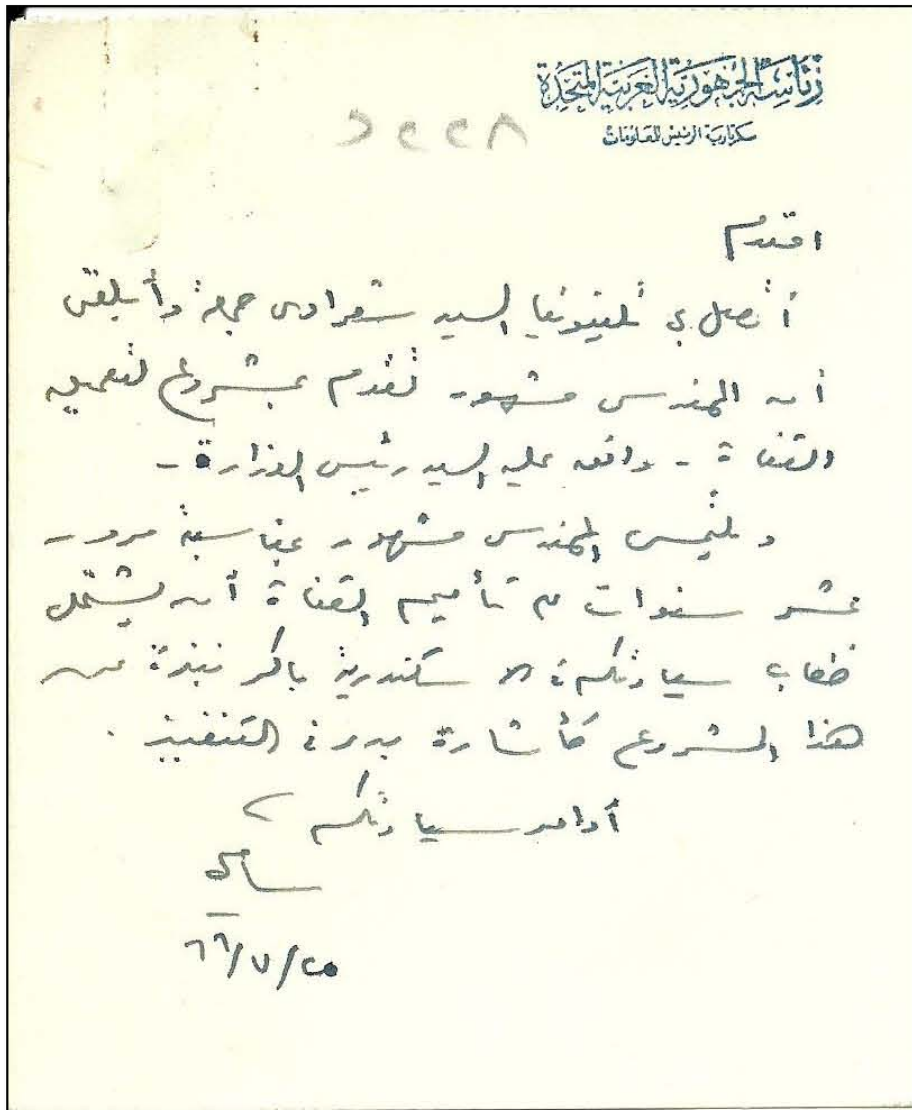 رئاسة الجمهورية العربية المتحدة
سكرتارية الرئيس للمعلومات
افندم
أتصل بى تليفونيا السيد شعراوى جمعة وأبلغنى
أن المهندس مشهور تقدم بمشروع لتعميق
القناة - وافق عليه السيد رئيس الوزارة -
ويلتمس المهندس مشهور بمناسبة مرور
عشر سنوات على تأميم القناة أن يشتمل
خطاب سيادتكم فى الاسكندرية باكر نبذة عن
هذا المشروع كأشارة بدء فى التنفيذ .
أوامر سيادتكم
سامى
٢٥/٧/٦٦